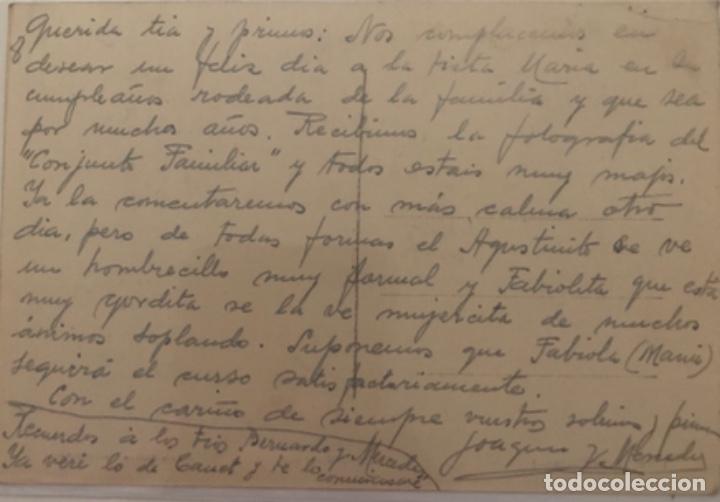 Querida tia y primos: Nos complacemos en
desear un feliz dia a la tieta Maria en su
cumpleaños rodeada de la familia y que sea
por muchos años. Recibimos la fotografia del
"Conjunto Familiar" y todos estais muy majos.
Ya la comentaremos con más calma otro
dia, pero de todas formas el Agustinito se ve
un hombrecillo muy formal y Fabiolita que está
muy gordita se la ve mujercita de muchos
ánimos soplando. Suponemos que Fabiola (Maria)
seguirá el curso satisfactoriamente.
Con el cariño de siempre vuestros sobrinos y primos
Joaquin y Mercedes
Recuerdos á los tios Bernardo y Mercedes
Ya veré lo de Canet y te lo comunicaré
todocoleccion